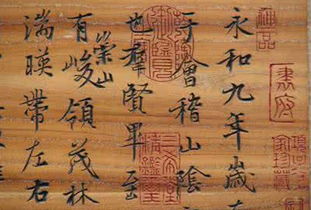 神品
永和九年歲在
于會稽山陰
也羣賢畢至
崇山
有峻領茂林
湍暎帶左右